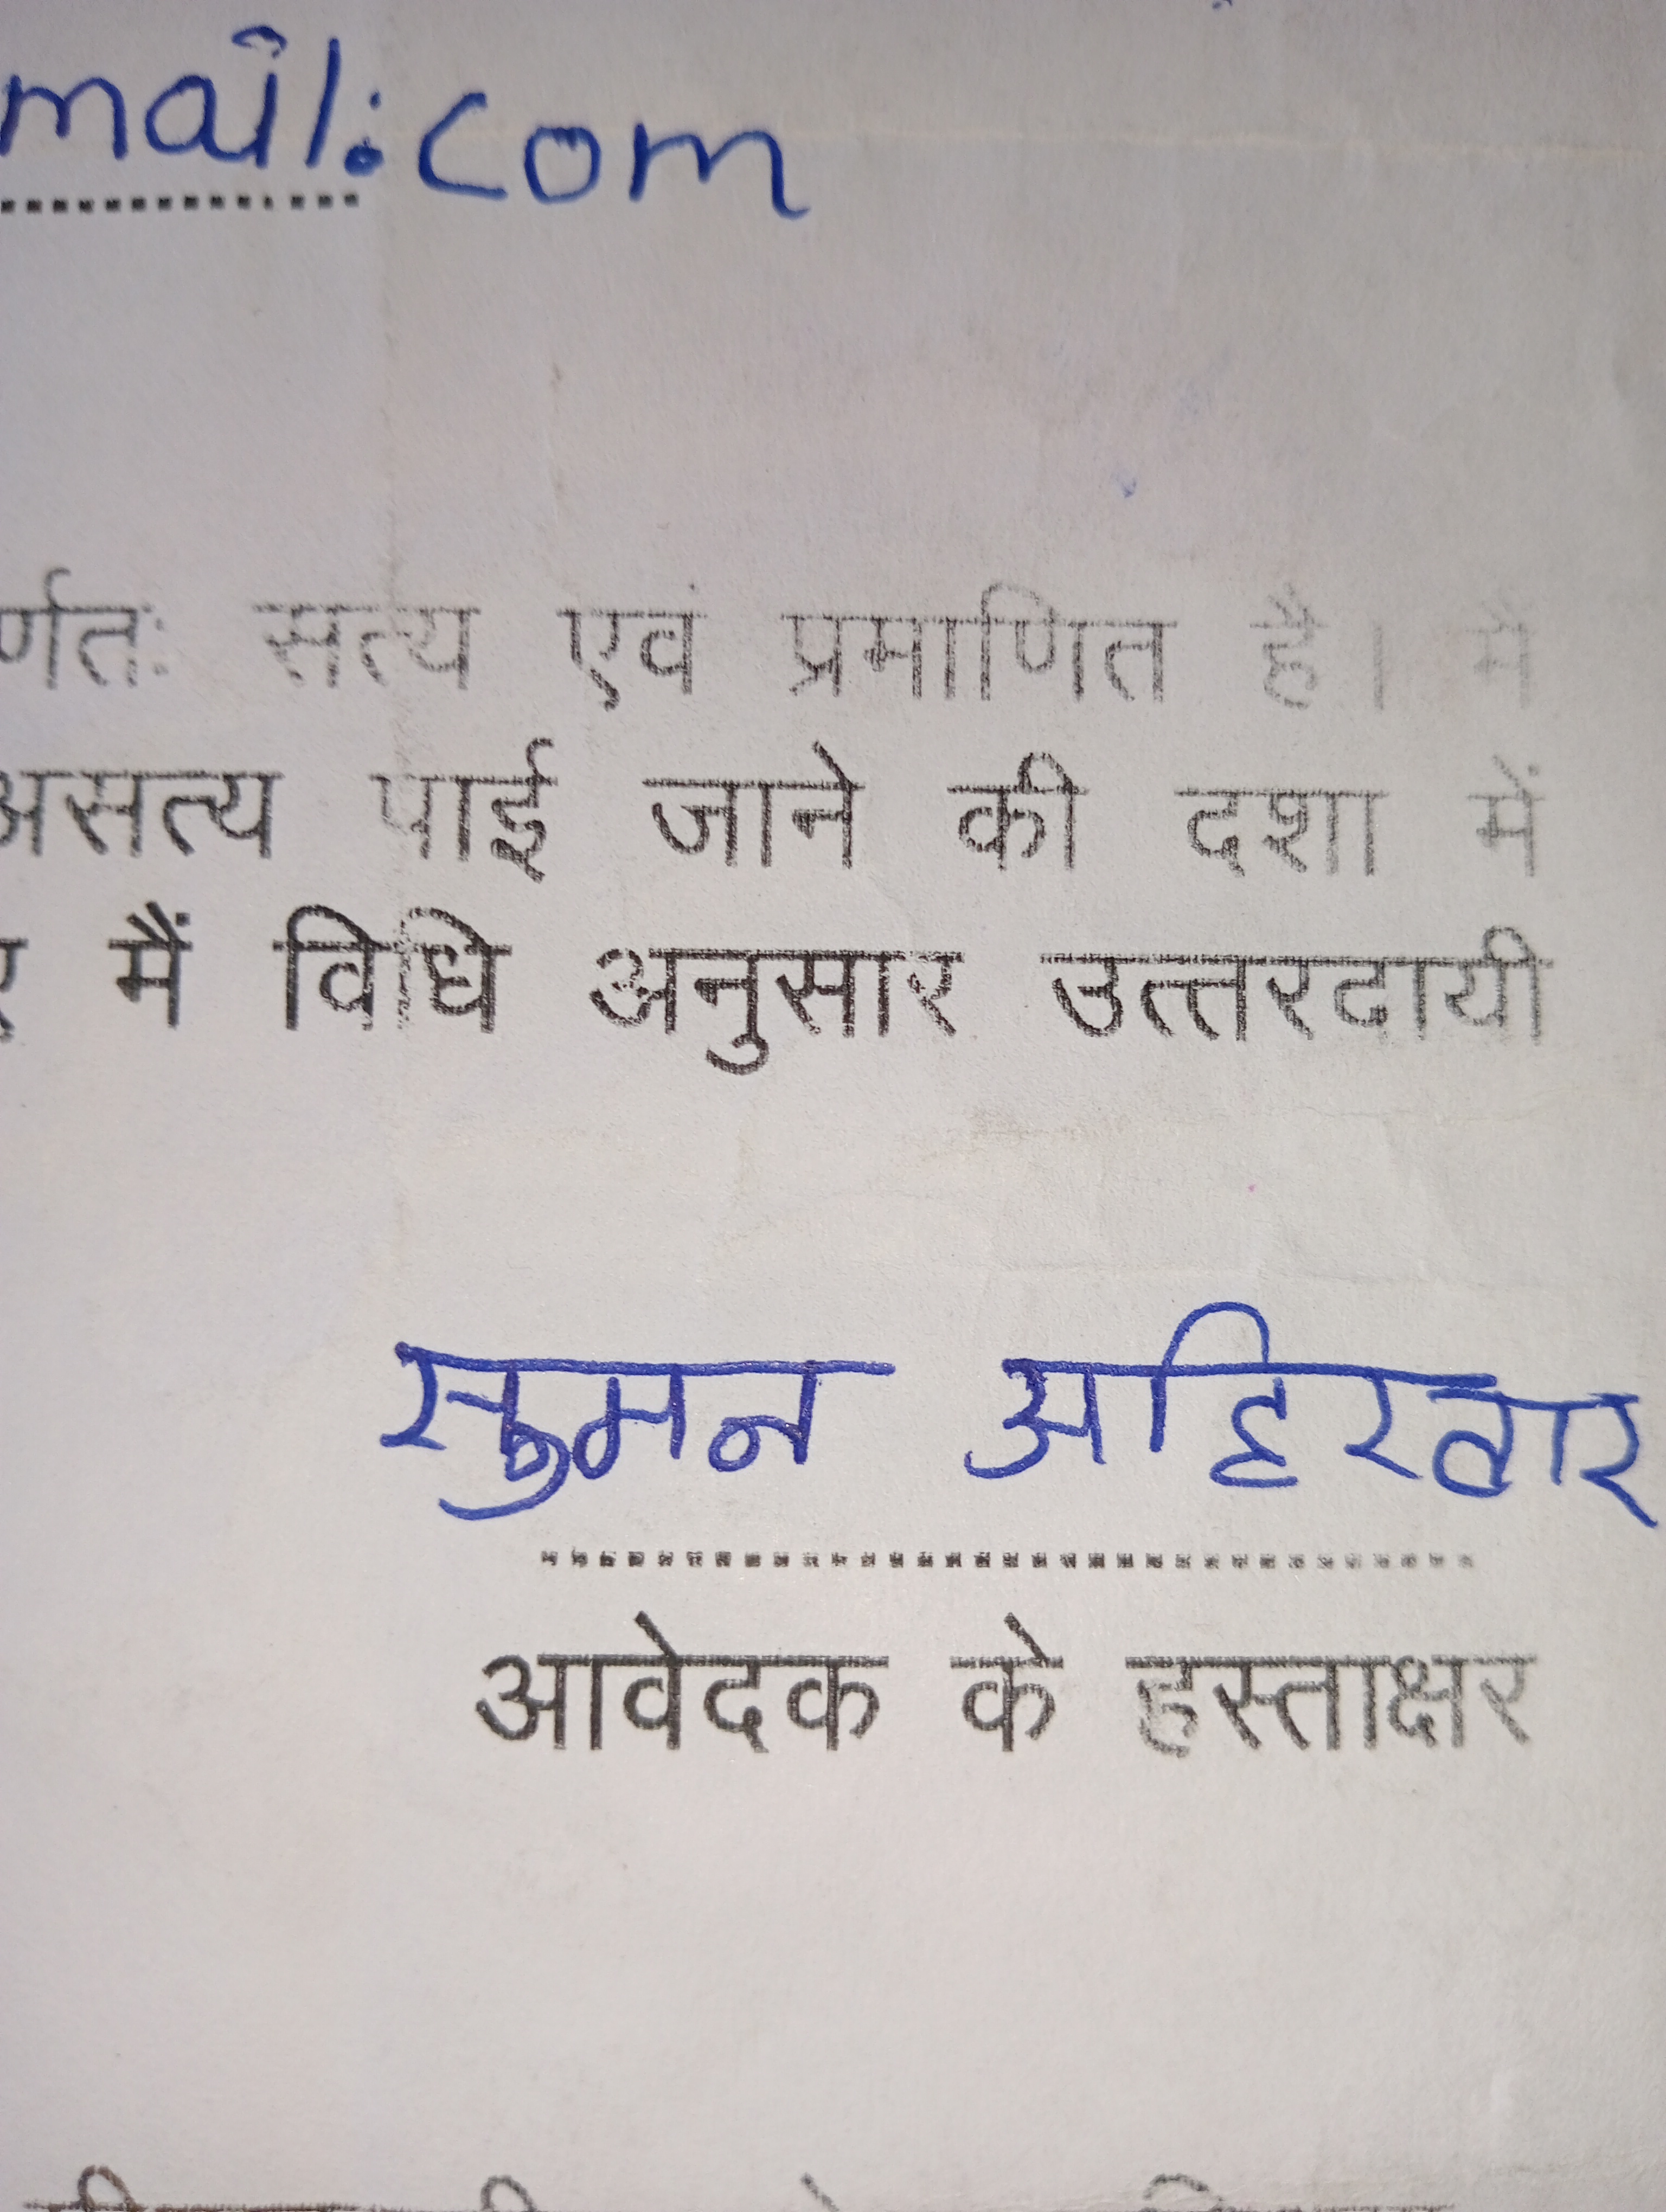 mail.com
र्णतः सत्य एवं प्रमाणित है। मैं
असत्य पाई जाने की दशा में
मैं विधि अनुसार उत्तरदायी
सुमन अहिरवार
आवेदक के हस्ताक्षर